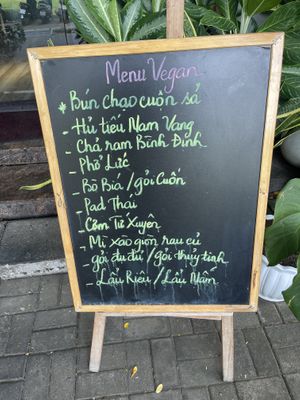 Menu Vegan
* Bún chạo cuộn sả
- Hủ tiếu Nam Vang
- Chả ram Bình Định
- Phở Lức
- Bò Bía / gỏi Cuốn
- Pad Thai
- Cơm Tứ Xuyên
- Mì xào giòn rau củ
gỏi đu đủ / gỏi thủy tinh
- Lẩu Riêu / Lẩu Nấm